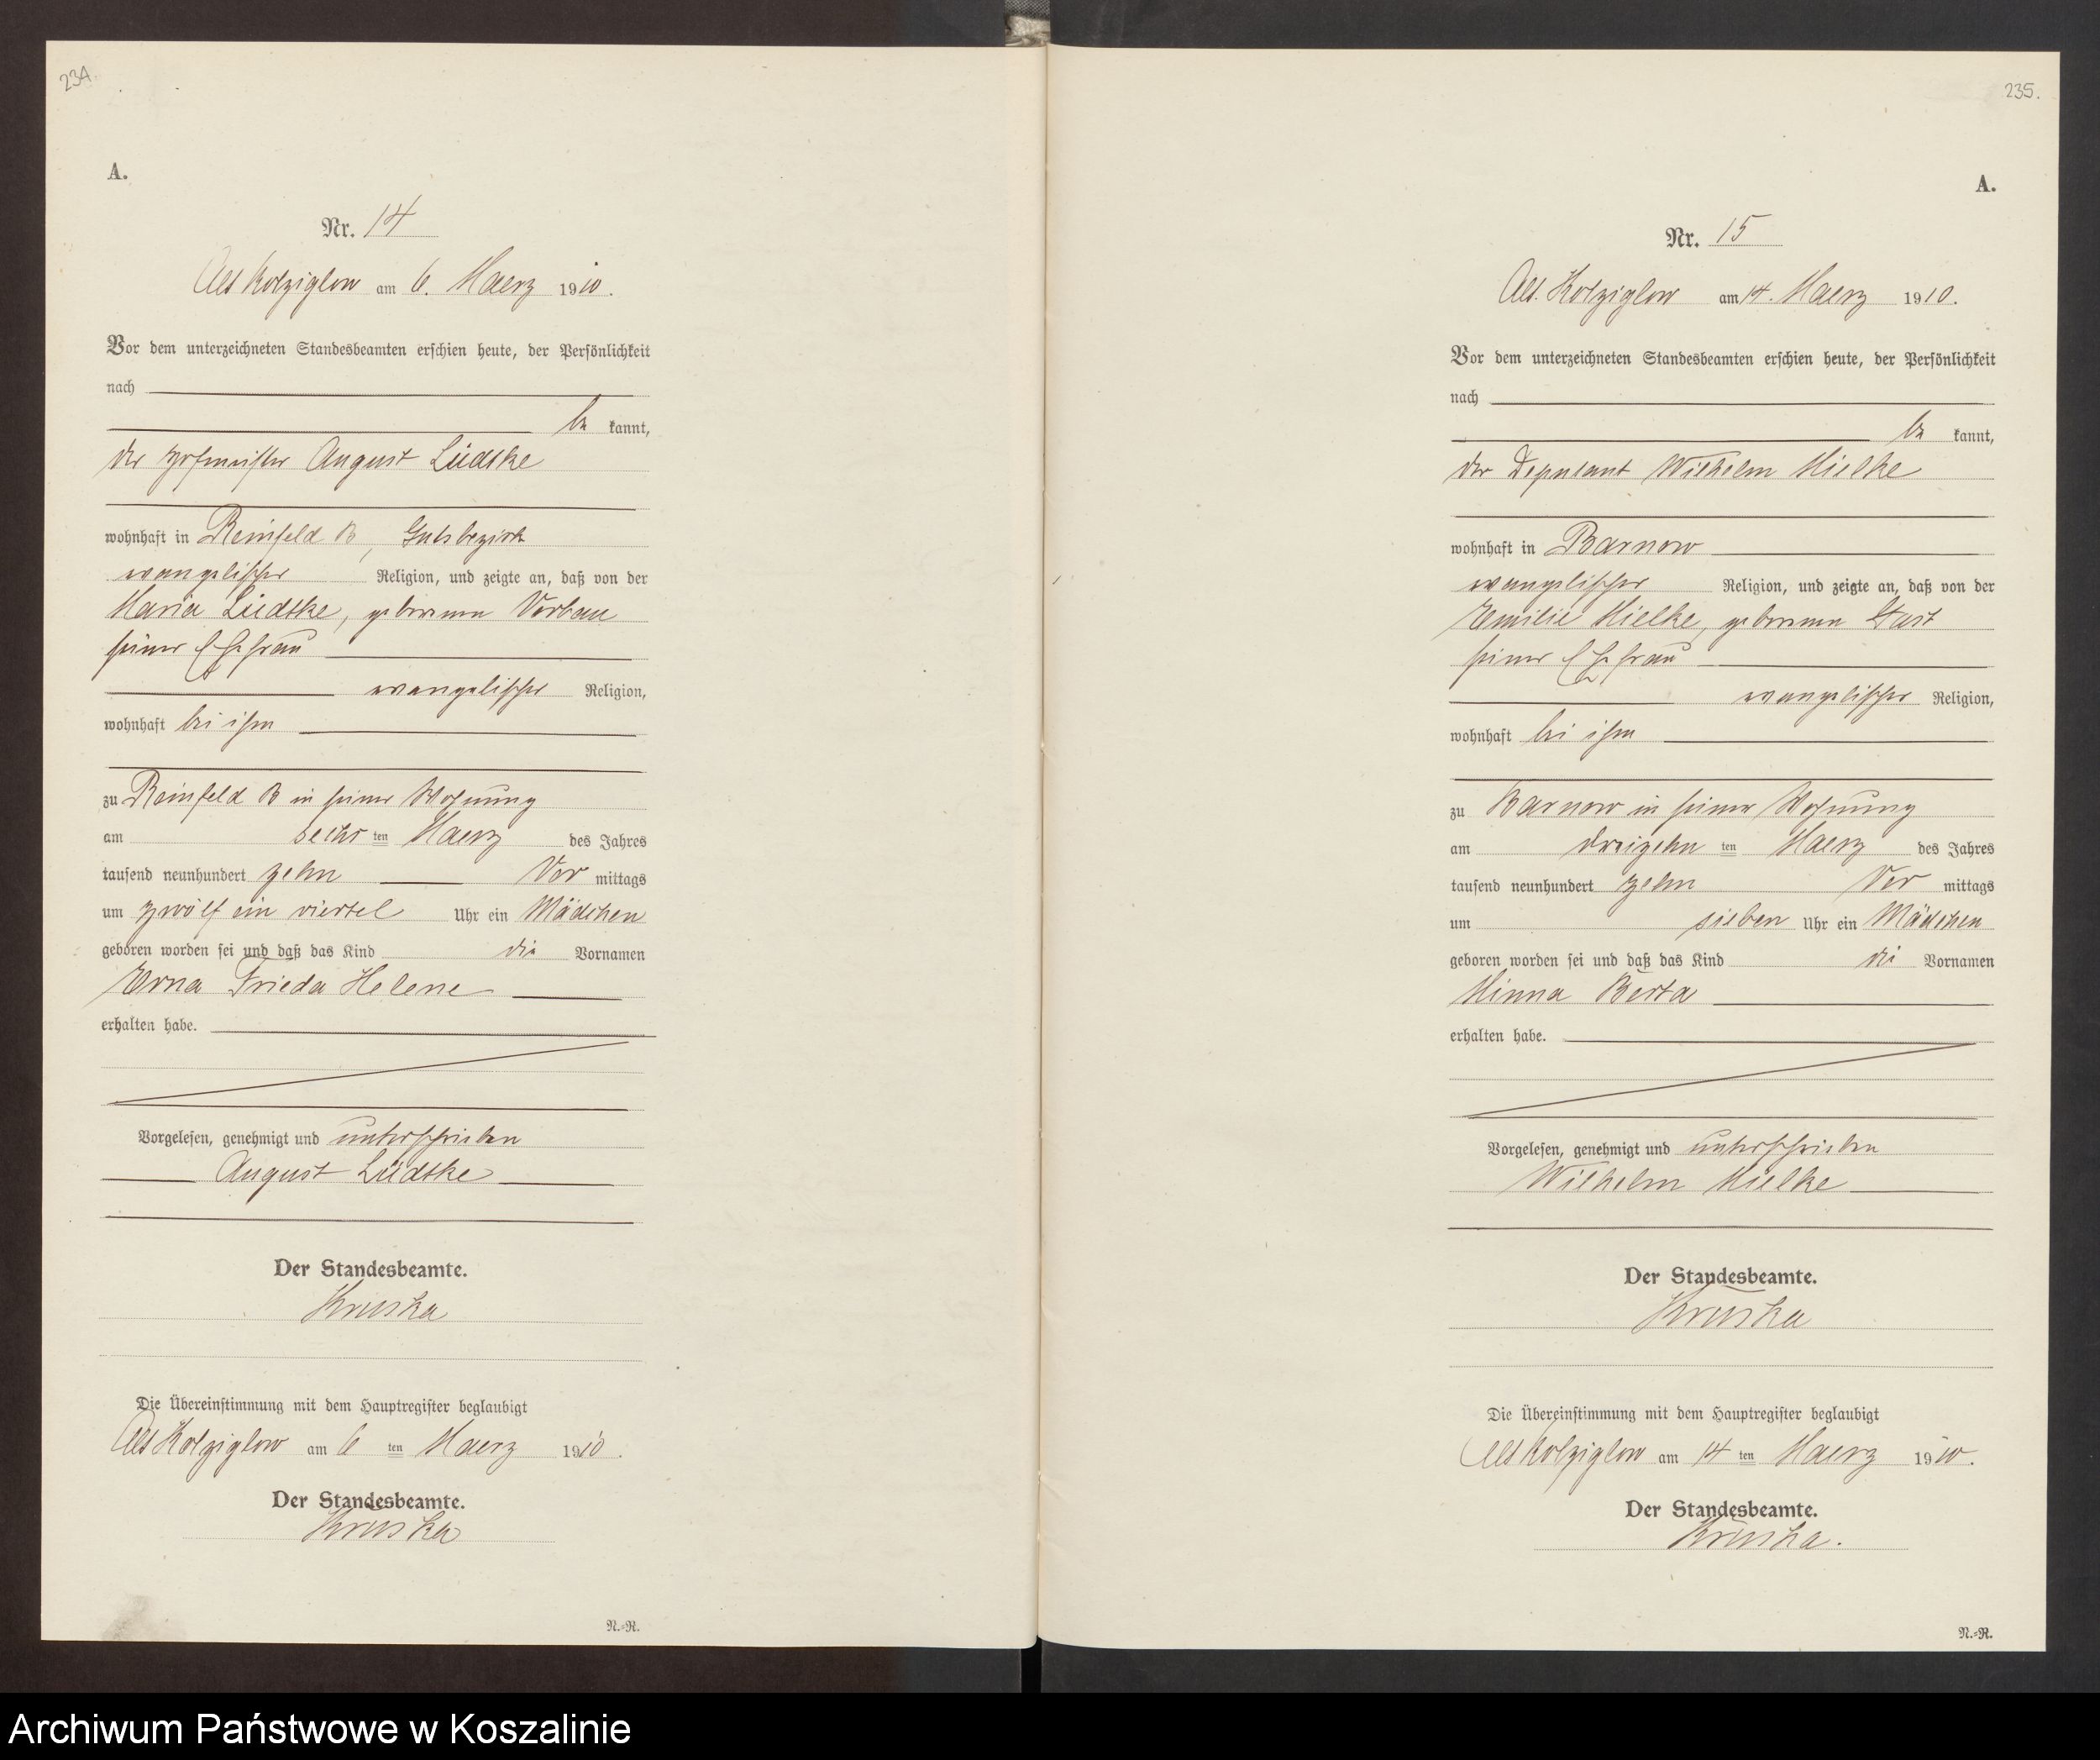 234.
A.
Nr. 14
Alt Kolziglow am 6. Maerz 1910.
Vor dem unterzeichneten Standesbeamten erschien heute, der Persönlichkeit
nach
be kannt,
der Hofmeister August Lüdtke
wohnhaft in Reinfeld B, Gutsbezirk
evangelischer Religion, und zeigte an, daß von der
Maria Lüdtke, geborenen Vorbau
seiner Ehefrau
evangelischer Religion,
wohnhaft bei ihm
zu Reinfeld B in seiner Wohnung
am sechs ten Maerz des Jahres
tausend neunhundert zehn Vor mittags
um zwölf ein viertel Uhr ein Mädchen
geboren worden sei und daß das Kind die Vornamen
Erna Frieda Helene
erhalten habe.
Vorgelesen, genehmigt und unterschrieben
August Lüdtke
Der Standesbeamte.
Kruska
Die Übereinstimmung mit dem Hauptregister beglaubigt
Alt Kolziglow am 6 ten Maerz 1910.
Der Standesbeamte.
Kruska
N.=R.
235.
A.
Nr. 15
Alt. Kolziglow am 14. Maerz 1910.
Vor dem unterzeichneten Standesbeamten erschien heute, der Persönlichkeit
nach
be kannt,
der Deputant Wilhelm Mielke
wohnhaft in Barnow
evangelischer Religion, und zeigte an, daß von der
Emilie Mielke, geborenen
seiner Ehefrau
evangelischer Religion,
wohnhaft bei ihm
zu Barnow in seiner Wohnung
am dreizehn ten Maerz des Jahres
tausend neunhundert zehn Vor mittags
um sieben Uhr ein Mädchen
geboren worden sei und daß das Kind die Vornamen
Minna Berta
erhalten habe.
Vorgelesen, genehmigt und unterschrieben
Wilhelm Mielke
Der Standesbeamte.
Kruska
Die Übereinstimmung mit dem Hauptregister beglaubigt
Alt Kolziglow am 14 ten Maerz 1910.
Der Standesbeamte.
Kruska.
N.=R.
Archiwum Państwowe w Koszalinie